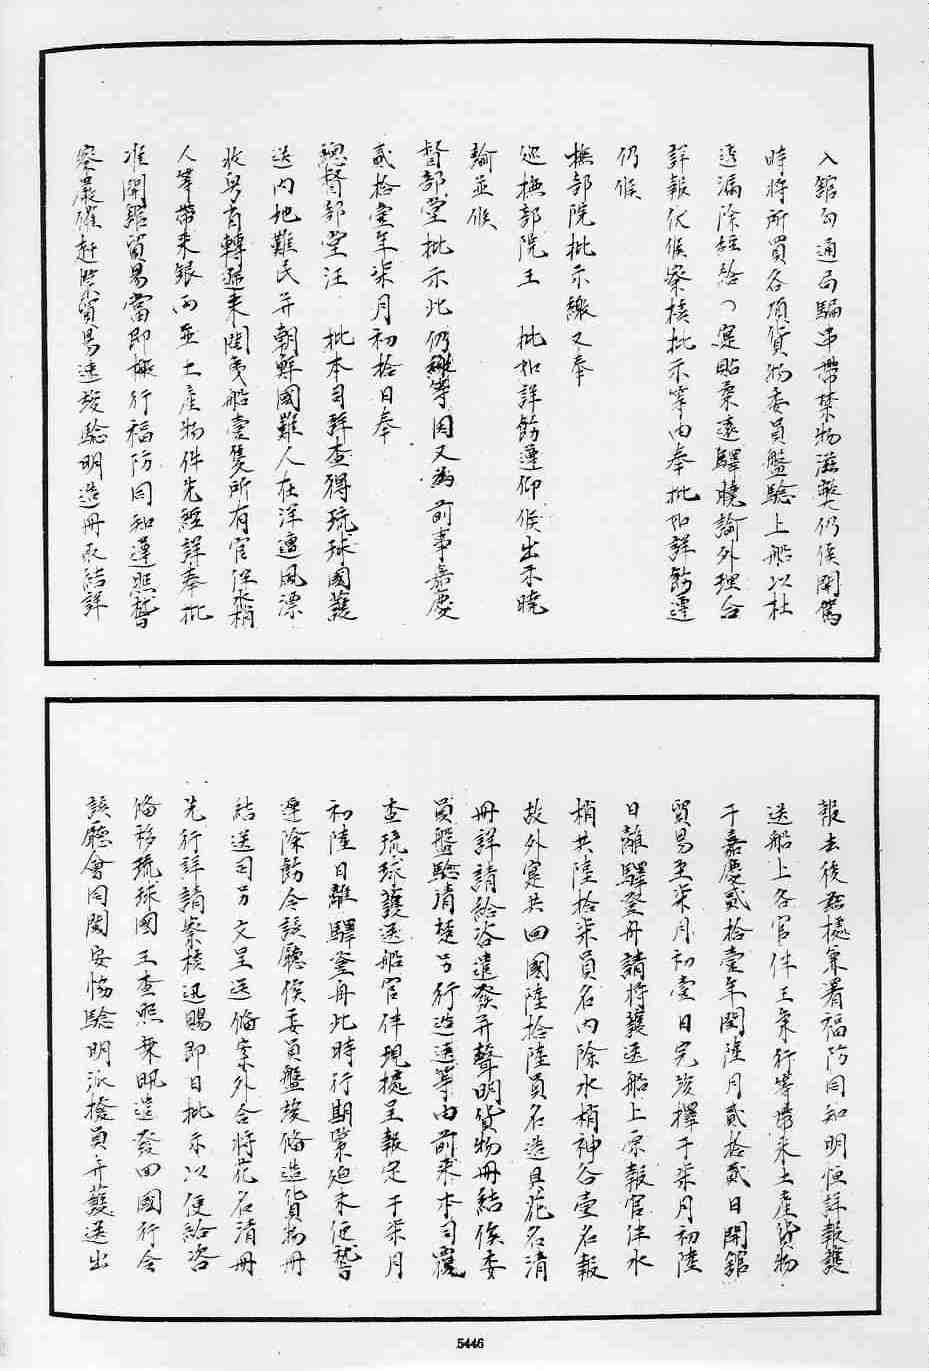 入館勾通勾騙串帶禁物滋弊仍俟開駕
時將所買各項貨物委員盤驗上船以杜
透漏除經給示寔貼柔遠驛曉諭外理合
詳報伏候察核批示等由奉批如詳飭遵
仍候
撫部院批示繳又奉
巡撫部院王　批如詳飭遵仰候出示曉
諭並候
督部堂批示此仍繳等因又為前事嘉慶
貳拾壹年柒月初拾日奉
總督部堂汪　批本司詳查得琉球國護
送內地難民并朝鮮國難人在洋遭風漂
收粵省轉遞來閩夷船壹隻所有官伴水梢
人等帶來銀兩並土產物件先經詳奉批
准開館貿易當即檄行福防同知遵照督
察嚴催赶緊貿易速竣驗明造冊取結詳
報去後茲據兼署福防同知明恒詳報護
送船上各官伴王秉行等帶來土產貨物
于嘉慶貳拾壹年閏陸月貳拾貳日開館
貿易至柒月初壹日完竣擇于柒月初陸
日離驛登舟請將護送船上原報官伴水
梢共陸拾柒員名內除水梢神谷壹名報
故外寔共回國陸拾陸員名造具花名清
冊詳請給咨遣發并聲明貨物冊結俟委
員盤驗清楚另行造送等由前來本司覆
查琉球護送船官伴現據呈報定于柒月
初陸日離驛登舟此時行期緊迫未便暫
遲除飭令該廳俟委員盤竣俻造貨物冊
結送司另文呈送俻案外合將花名清冊
先行詳請察核迅賜即日批示以便給咨
俻移琉球國王查照乘汛遣發回國行令
該廳會同閩安協驗明派撥員弁護送出